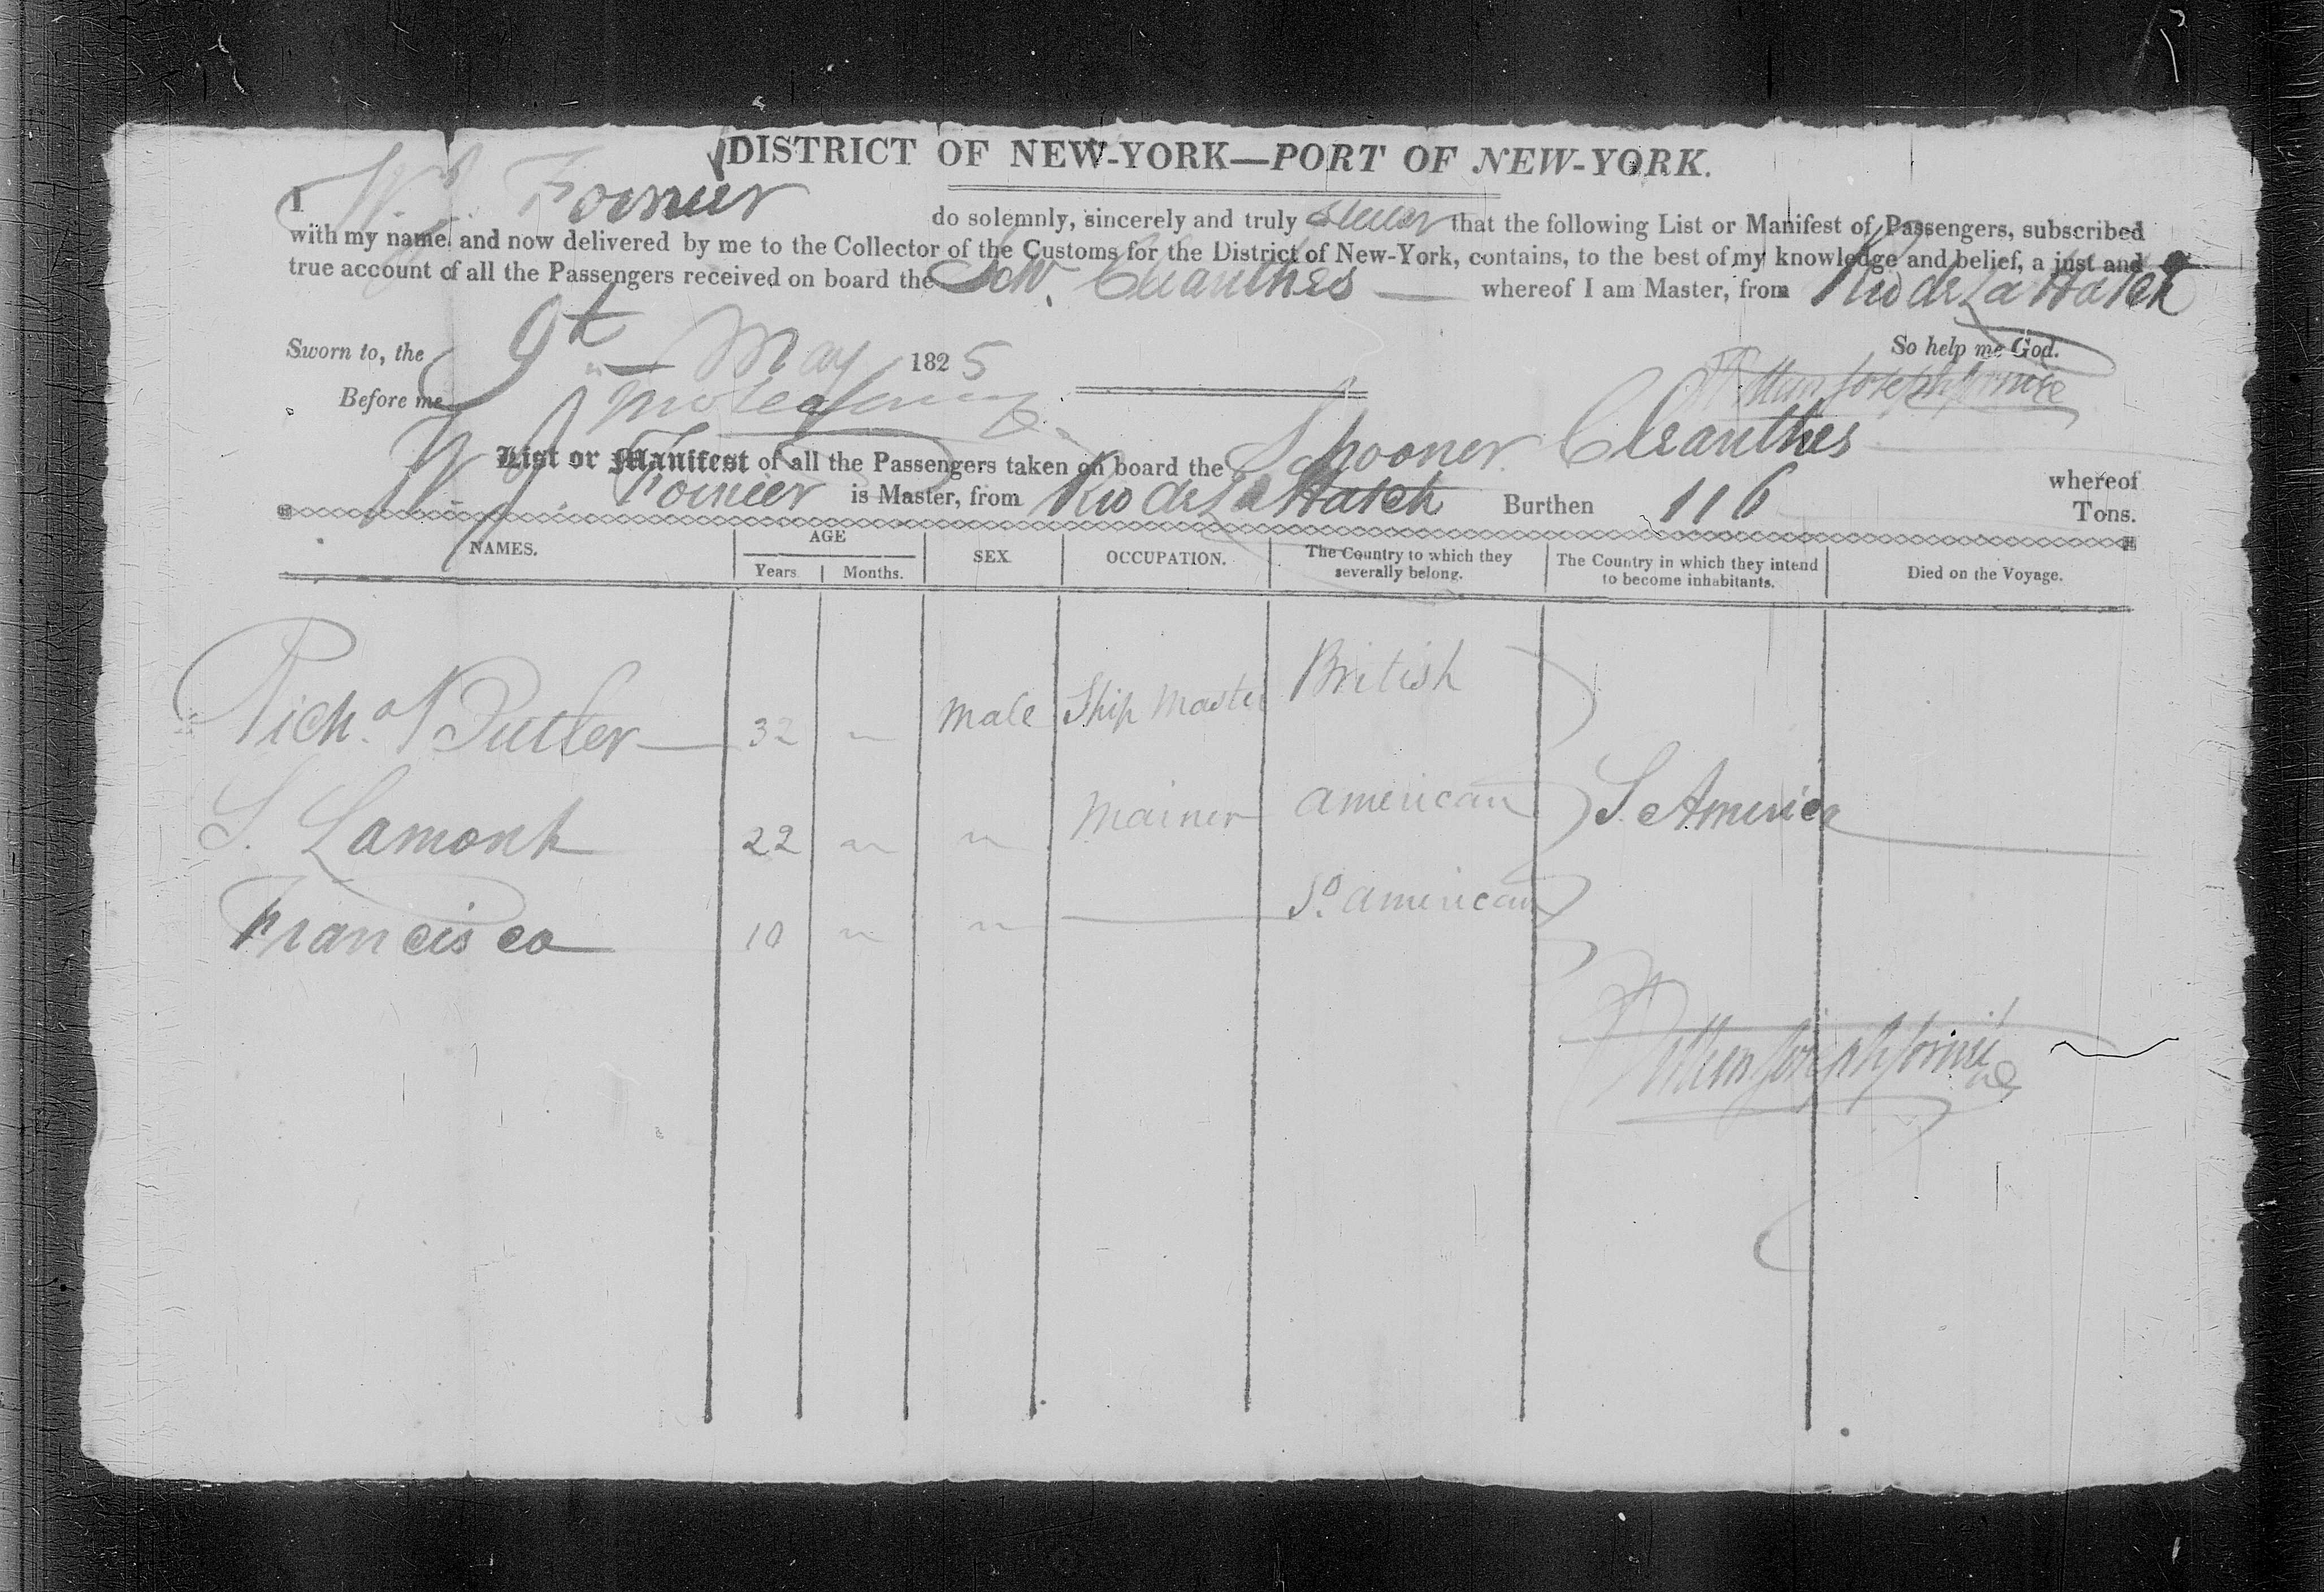 DISTRICT OF NEW-YORK—PORT OF NEW-YORK.
I Wm J. Fornier do solemnly, sincerely and truly swear that the following List or Manifest of Passengers, subscribed
with my name, and now delivered by me to the Collector of the Customs for the District of New-York, contains, to the best of my knowledge and belief, a just and
true account of all the Passengers received on board the Schr. Cleanthes whereof I am Master, from Rio de La Hatch
So help me God.
Sworn to, the 9th May 1825
Before me
List or Manifest of all the Passengers taken on board the Schooner Cleanthes whereof
Wm J. Fornier is Master, from Rio de La Hatch Burthen 116 Tons.
NAMES. AGE SEX OCCUPATION. The Country to which they severally belong. The Country in which they intend to become inhabitants. Died on the Voyage.
Years. Months.
Richd Butler 32 " male Ship Master British
S. Lamont 22 " " Mainer American S. America
Francisco 10 " " — So. American